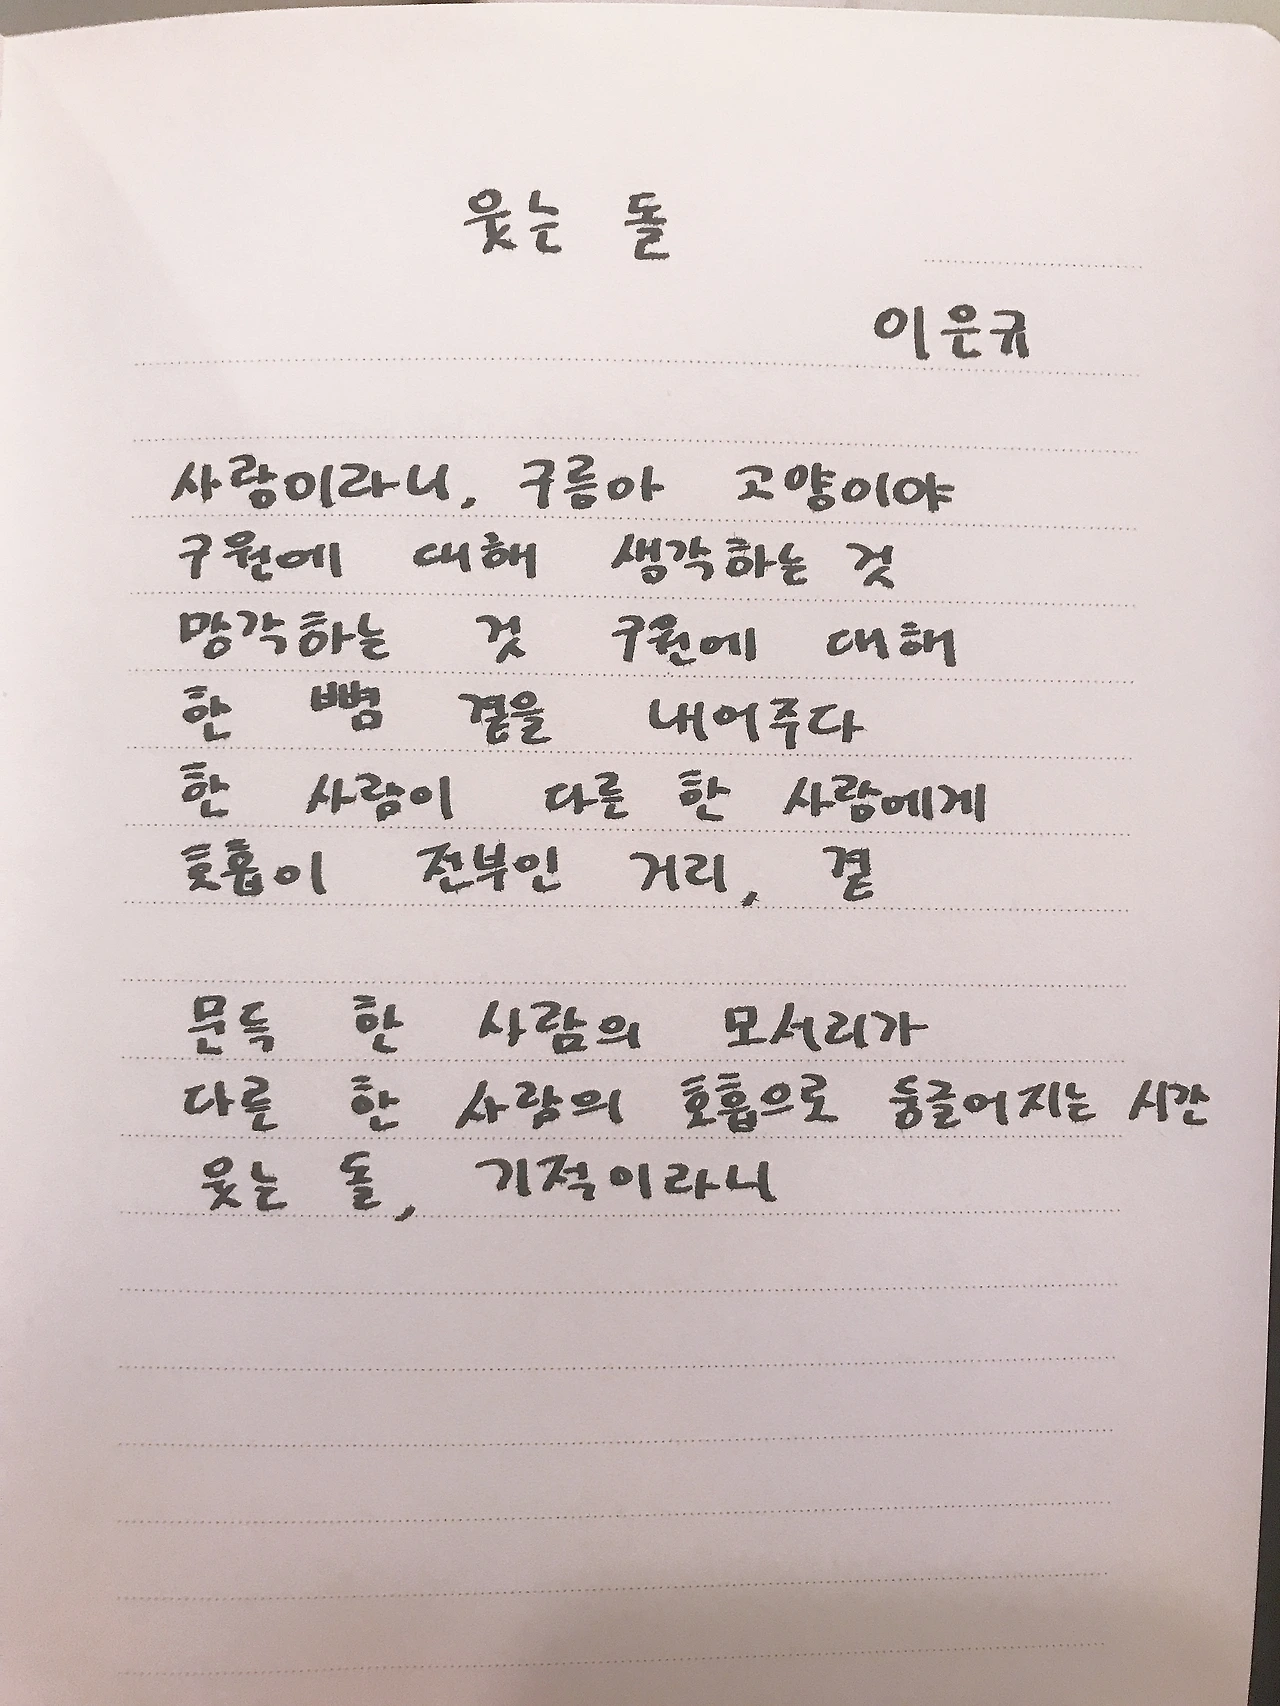 웃는 돌
이은규
사람이라니, 구름아 고양이야
구원에 대해 생각하는 것
망각하는 것 구원에 대해
한 뼘 곁을 내어주다
한 사람이 다른 한 사람에게
호흡이 전부인 거리, 곁
문득 한 사람의 모서리가
다른 한 사람의 호흡으로 둥글어지는 시간
웃는 돌, 기적이라니